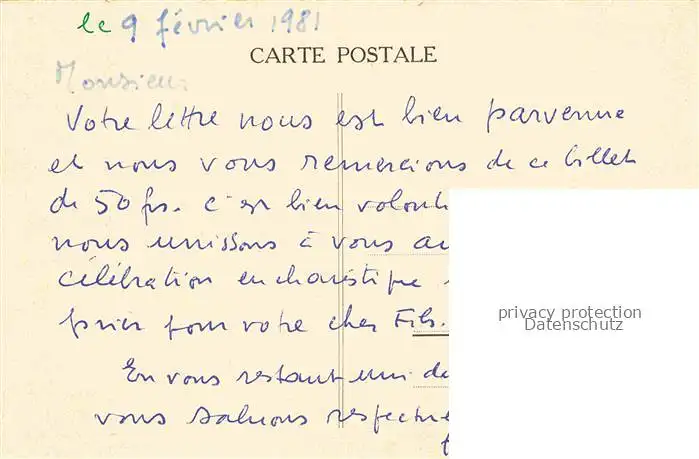 le 9 février 1981
CARTE POSTALE
Monsieur
Votre lettre nous est bien parvenue
et nous vous remercions de ce billet
de 50 frs. C'est bien volont
nous unissons à vous au
célébration eucharistique
prier pour votre cher Fils.
En vous restant uni da
vous saluons respectue
privacy protection
Datenschutz